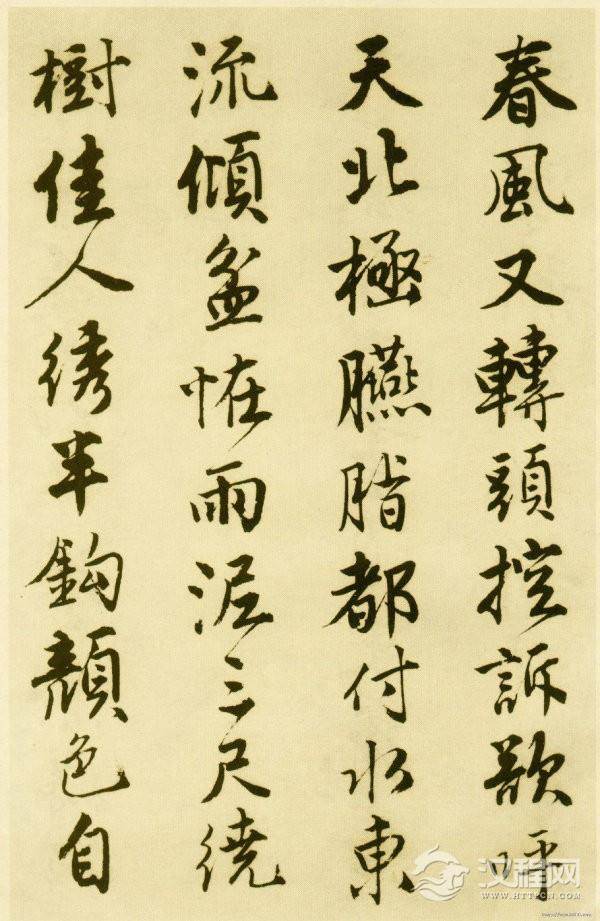 春風又轉頭控訴欲呼
天北極臙脂都付水東
流傾盆恠雨泥三尺繞
樹佳人綉半鈎顏色自
汉程网
WWW.HTTPCN.COM